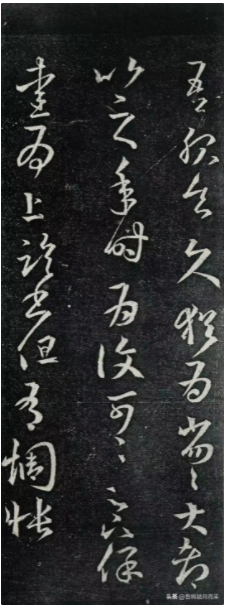 吾服食久猶為劣々大都
比之年時為復可々足下保
愛為上臨書但有惆悵
头条